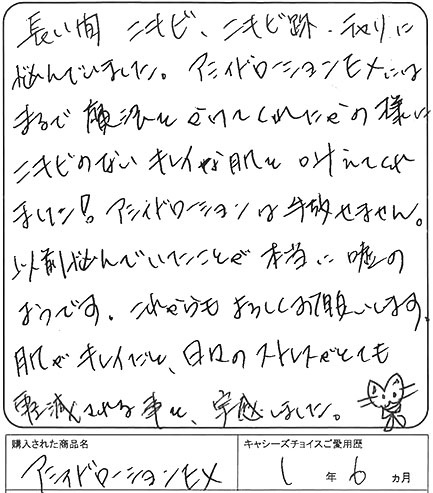 長い間 ニキビ、ニキビ跡・テカリに
悩んでいました。アシィドローションEXには
まるで魔法をかけてくれたかの様に
ニキビのない キレイな肌を 叶えてくれ
ました! アシィドローションは手放せません。
以前悩んでいたことが 本当に 嘘の
ようです。これからもよろしくお願いします。
肌がキレイだと、日々のストレスがとても
軽減される事を、実感しました。
購入された商品名
キャシーズチョイスご愛用歴
アシィドローションEX
1年6ヵ月